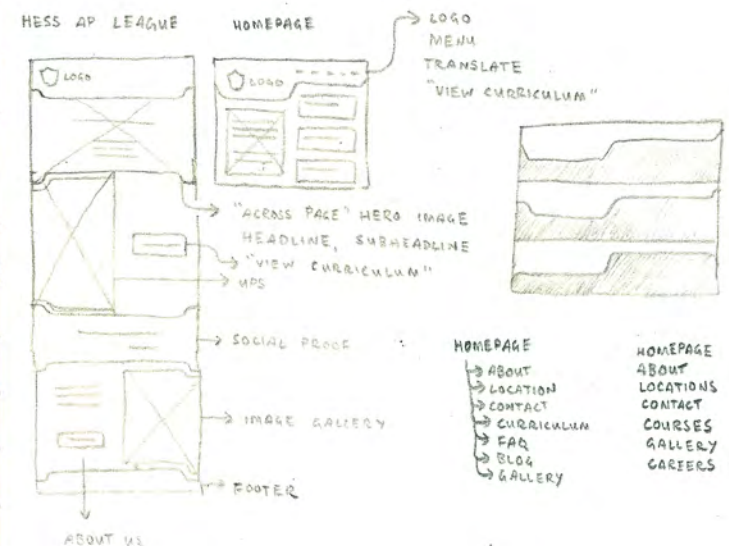 HESS AP LEAGUE
HOMEPAGE
LOGO
MENU
TRANSLATE
"VIEW CURRICULUM"
LOGO
LOGO
"ACROSS PAGE" HERO IMAGE
HEADLINE, SUBHEADLINE
"VIEW CURRICULUM"
UPS
SOCIAL PROOF
IMAGE GALLERY
FOOTER
ABOUT US
HOMEPAGE
ABOUT
LOCATION
CONTACT
CURRICULUM
FAQ
BLOG
GALLERY
HOMEPAGE
ABOUT
LOCATIONS
CONTACT
COURSES
GALLERY
CAREERS